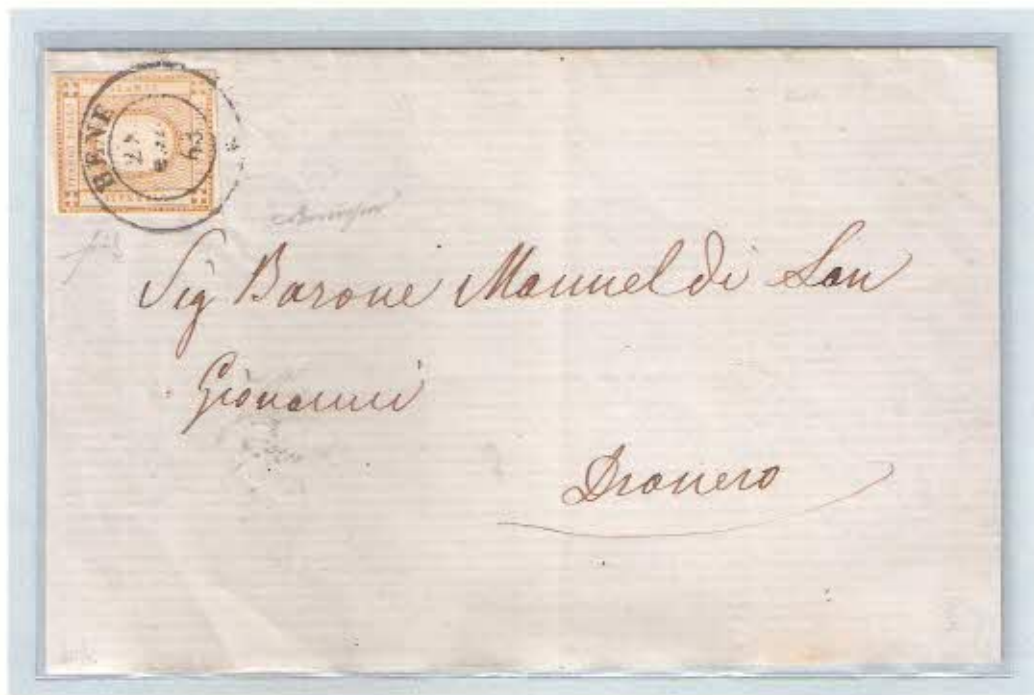 BENE
Sig Barone Manuel di San
Giovanni
Dronero